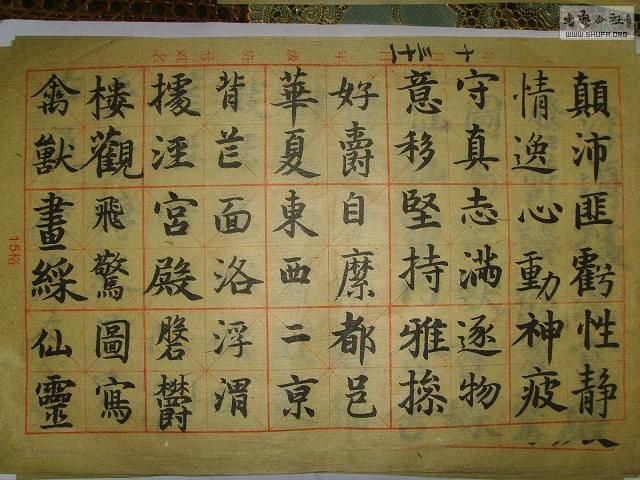 顛沛匪虧性静
情逸心動神疲
守真志滿逐物
意移堅持雅操
好爵自縻都邑
華夏東西二京
背芒面洛浮渭
據涇宮殿磐鬱
楼觀飛驚圖寫
禽獸畫綵仙靈
15格
WWW.SHUFA.ORG